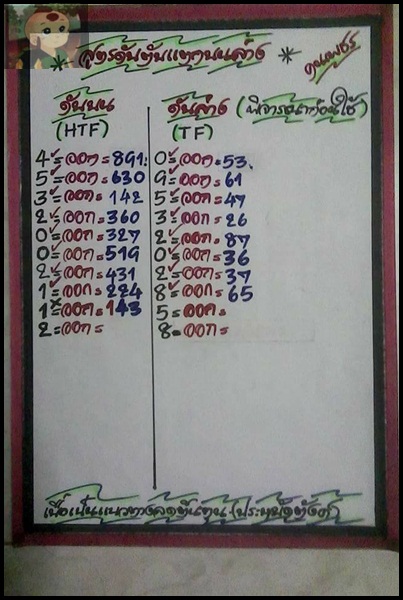 * สูตรดับต้นแตกบนล่าง *
คนเพชร
ดับบน
(HTF)
4 = ออก = 891
5 = ออก = 630
3 = ออก = 142
2 = ออก = 360
0 = ออก = 327
0 = ออก = 519
2 = ออก = 431
1 = ออก = 224
1 = ออก = 143
2 = ออก =
ดับล่าง (พิจารณาก่อนใช้)
(TF)
0 = ออก = 53
9 = ออก = 61
5 = ออก = 47
3 = ออก = 26
2 = ออก = 87
0 = ออก = 36
2 = ออก = 37
8 = ออก = 65
5 = ออก =
8 = ออก =
เพื่อเป็นแนวทางลดต้นทุน (ประหยัดตังค์)